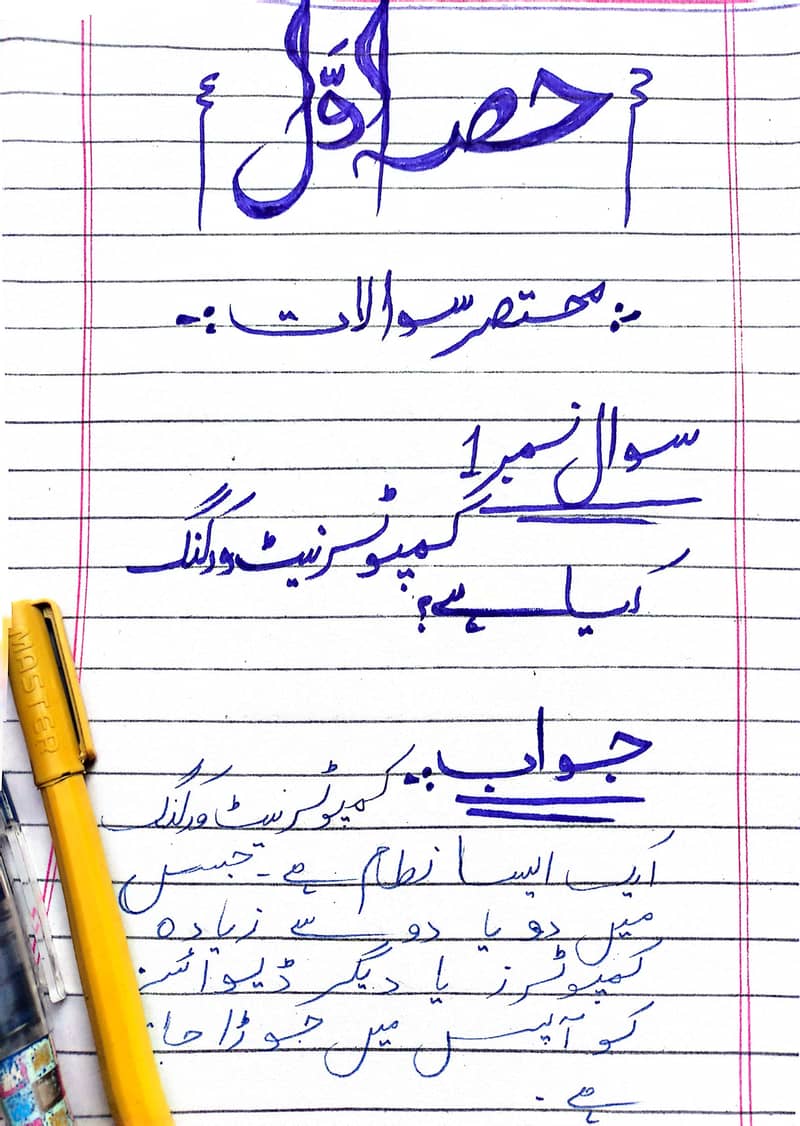 حصہ اوّل
مختصر سوالات
سوال نمبر 1
کمپیوٹر نیٹ ورکنگ
کیا ہے؟
جواب:- کمپیوٹر نیٹ ورکنگ
ایک ایسا نظام ہے۔ جس
میں دو یا دو سے زیادہ
کمپیوٹرز یا دیگر ڈیوائسز
کو آپس میں جوڑا جاتا
ہے۔
MASTER